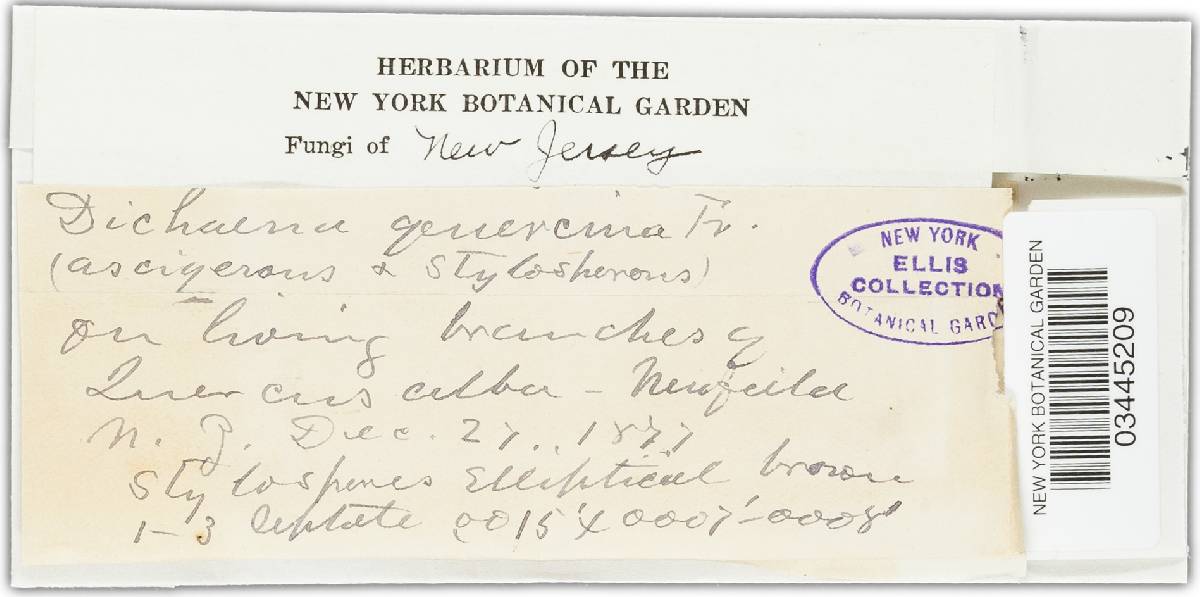 HERBARIUM OF THE
NEW YORK BOTANICAL GARDEN
Fungi of New Jersey
Dichaena quercina Fr.
(ascigerous & Stylosporous)
on living branches of
Quercus alba - Newfield
N. J. Dec. 27, 1877
Stylospores Elliptical brown
1-3 septate
NEW YORK
ELLIS
COLLECTION
BOTANICAL GARDE
NEW YORK BOTANICAL GARDEN
03445209